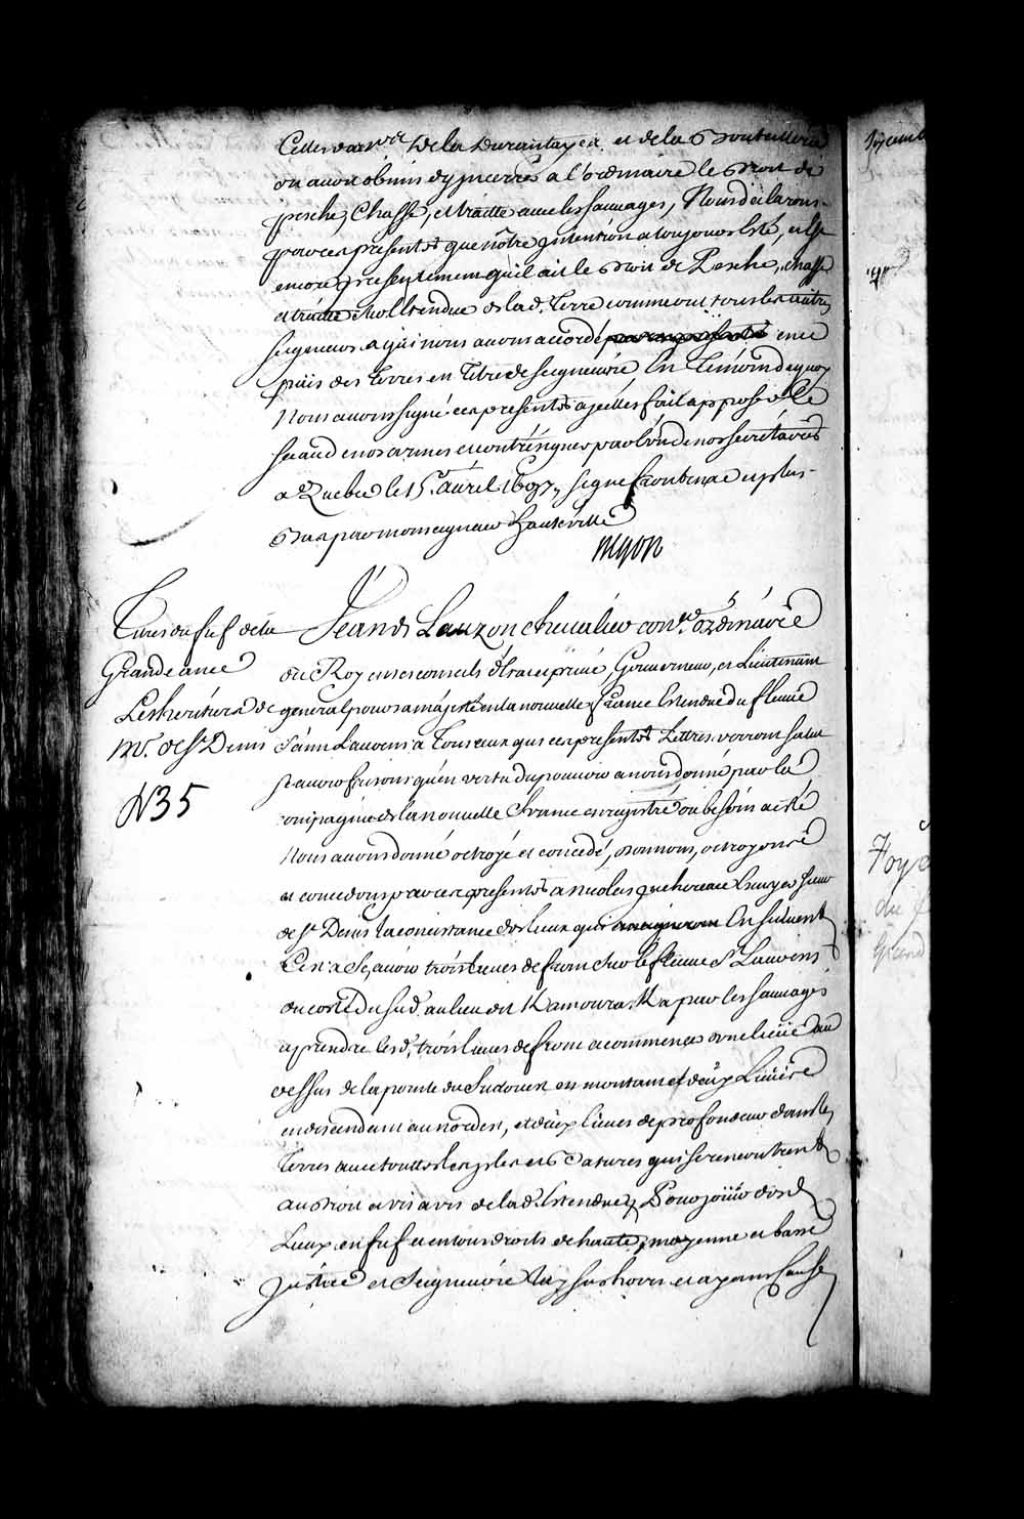 Celles dar.rd De la Durantaye et de la Bouteillerie
ou avoir obmis d'y inserrer a l'ordinaire le Droit de
pesche, Chasse, et traitte avec les sauvages, Nous declarons
par ces presentes que nôtre intention a toujours Esté, et Est
encore presentement qu'il ait le Droit de Pesche, chasse
et traitte dans l'Estendue de lad. Terre comme ont tous les autres
seigneurs a qui nous avons accordé en ce
païs des Terres en Titre de seigneurie, En Temoin de quoy
Nous avons signé ces presentes a ycelles fait apposer le
sceau de nos armes et contresigner par l'un de nos secretaires
a Quebec le 15.e avril 1697, signé frontenac et plus
Bas par monseigneur hauteville
Begon
Titres du fief de la
Grande ance
Les heritiers de
Mr. de St Denis
N 35
Jean De Lauzon chevalier con.er ordinaire
du Roy en ses conseils d'Estat et privé, Gouverneur, et Lieutenant
general pour sa majesté en la nouvelle france Estendue du fleuve
saint Laurens a Tous ceux qui ces presentes Lettres verront salut
sçavoir faisons qu'en vertu du pouvoir a nous donné par la
compagnie de la nouvelle france enregistré ou besoin a esté
Nous avons donné octroyé et concedé, donnons, octroyons
et concedons par ces presentes a nicolas Juchereau Escuyer sieur
de St Denis la consistance des lieux qui En suivent
C'est a sçavoir trois lieues de front sur le fleuve St Laurens
du costé du sud au lieu dit Kamoura.Ka par les sauvages
a prendre lesd. trois lieues de front a commencer une lieüe au
dessus de la pointe du sudouest en montant et deux Lieües
en descendant au nordest, et deux lieues de profondeur dans les
Terres avec touttes les isles et Batures qui se rencontrent
au droit et vis a vis de lad. Estendue, Pour jouir desd.
Lieux en fief et en tous droits de haute, moyenne et basse
Justice et Seigneurie luy ses hoirs et ayans Cause